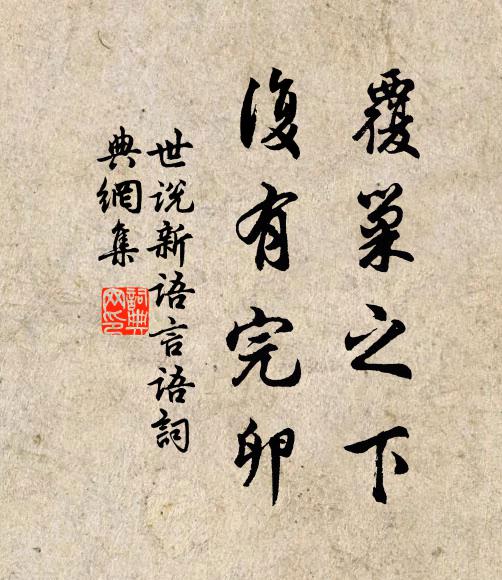 覆巢之下
復有完卵
世說新語言語詞
典網集
詞典
网印